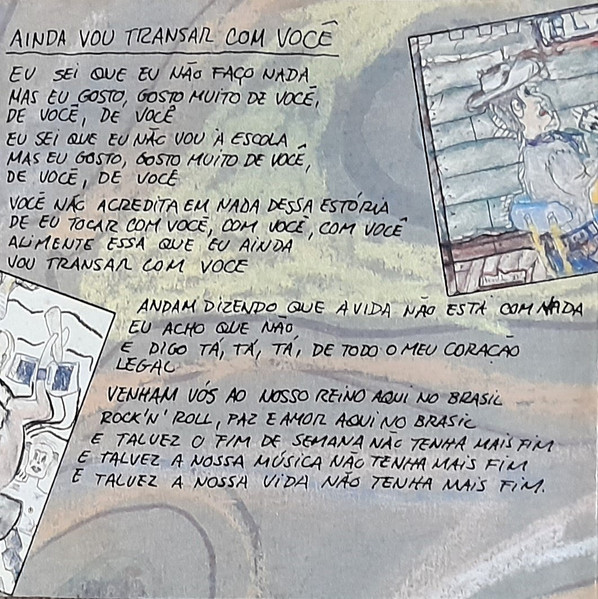 AINDA VOU TRANSAR COM VOCÊ
EU SEI QUE EU NÃO FAÇO NADA
MAS EU GOSTO, GOSTO MUITO DE VOCÊ,
DE VOCÊ, DE VOCÊ
EU SEI QUE EU NÃO VOU À ESCOLA
MAS EU GOSTO, GOSTO MUITO DE VOCÊ,
DE VOCÊ, DE VOCÊ
VOCÊ NÃO ACREDITA EM NADA DESSA ESTÓRIA
DE EU TOCAR COM VOCÊ, COM VOCÊ, COM VOCÊ
ALIMENTE ESSA QUE EU AINDA
VOU TRANSAR COM VOCE
ANDAM DIZENDO QUE A VIDA NÃO ESTÁ COM NADA
EU ACHO QUE NÃO
E DIGO TÁ, TÁ, TÁ, DE TODO O MEU CORAÇÃO
LEGAL
VENHAM VÓS AO NOSSO REINO AQUI NO BRASIL
ROCK'N'ROLL, PAZ E AMOR AQUI NO BRASIL
E TALVEZ O FIM DE SEMANA NÃO TENHA MAIS FIM
E TALVEZ A NOSSA MÚSICA NÃO TENHA MAIS FIM
E TALVEZ A NOSSA VIDA NÃO TENHA MAIS FIM.